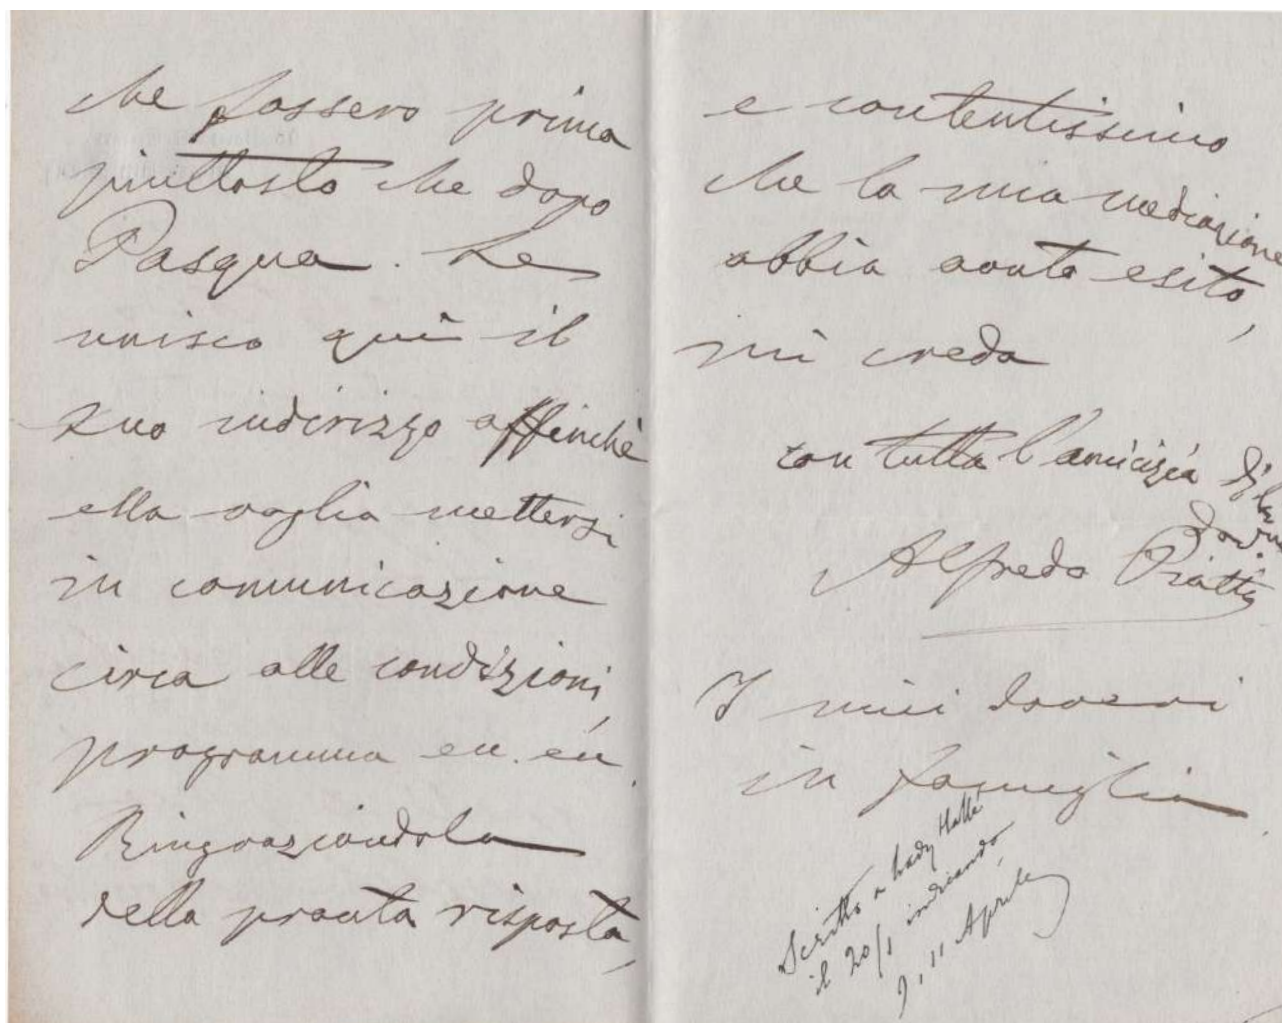 che fossero prima
piuttosto che dopo
Pasqua. Le
unisco quì il
suo indirizzo affinchè
ella voglia mettersi
in comunicazione
circa alle condizioni,
programma
Ringraziandola
della pronta risposta,
e contentissimo
che la mia mediazione
abbia avuto esito,
mi creda
con tutta l'amicizia
Alfredo Piatti
I miei doveri
in famiglia
Scritto a Lady Hallé
il 20/1 indicando
9, 11 Aprile